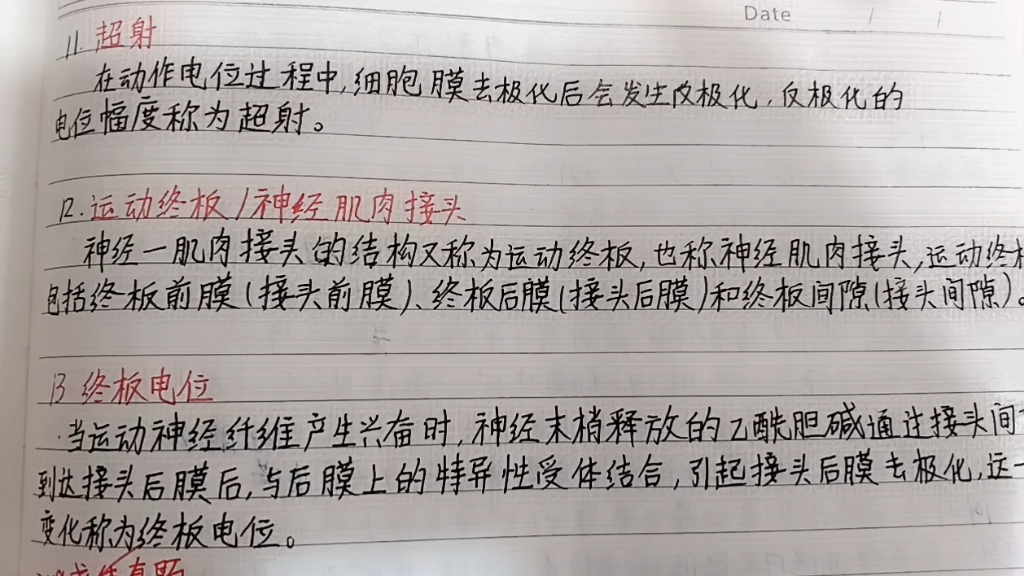 Date / /
11. 超射
在动作电位过程中,细胞膜去极化后会发生反极化,反极化的
电位幅度称为超射。
12.运动终板/神经肌肉接头
神经一肌肉接头的结构又称为运动终板,也称神经肌肉接头,运动终
包括终板前膜(接头前膜)、终板后膜(接头后膜)和终板间隙(接头间隙)。
13 终板电位
当运动神经纤维产生兴奋时,神经末梢释放的乙酰胆碱通过接头间
到达接头后膜后,与后膜上的特异性受体结合,引起接头后膜去极化,这一
变化称为终板电位。